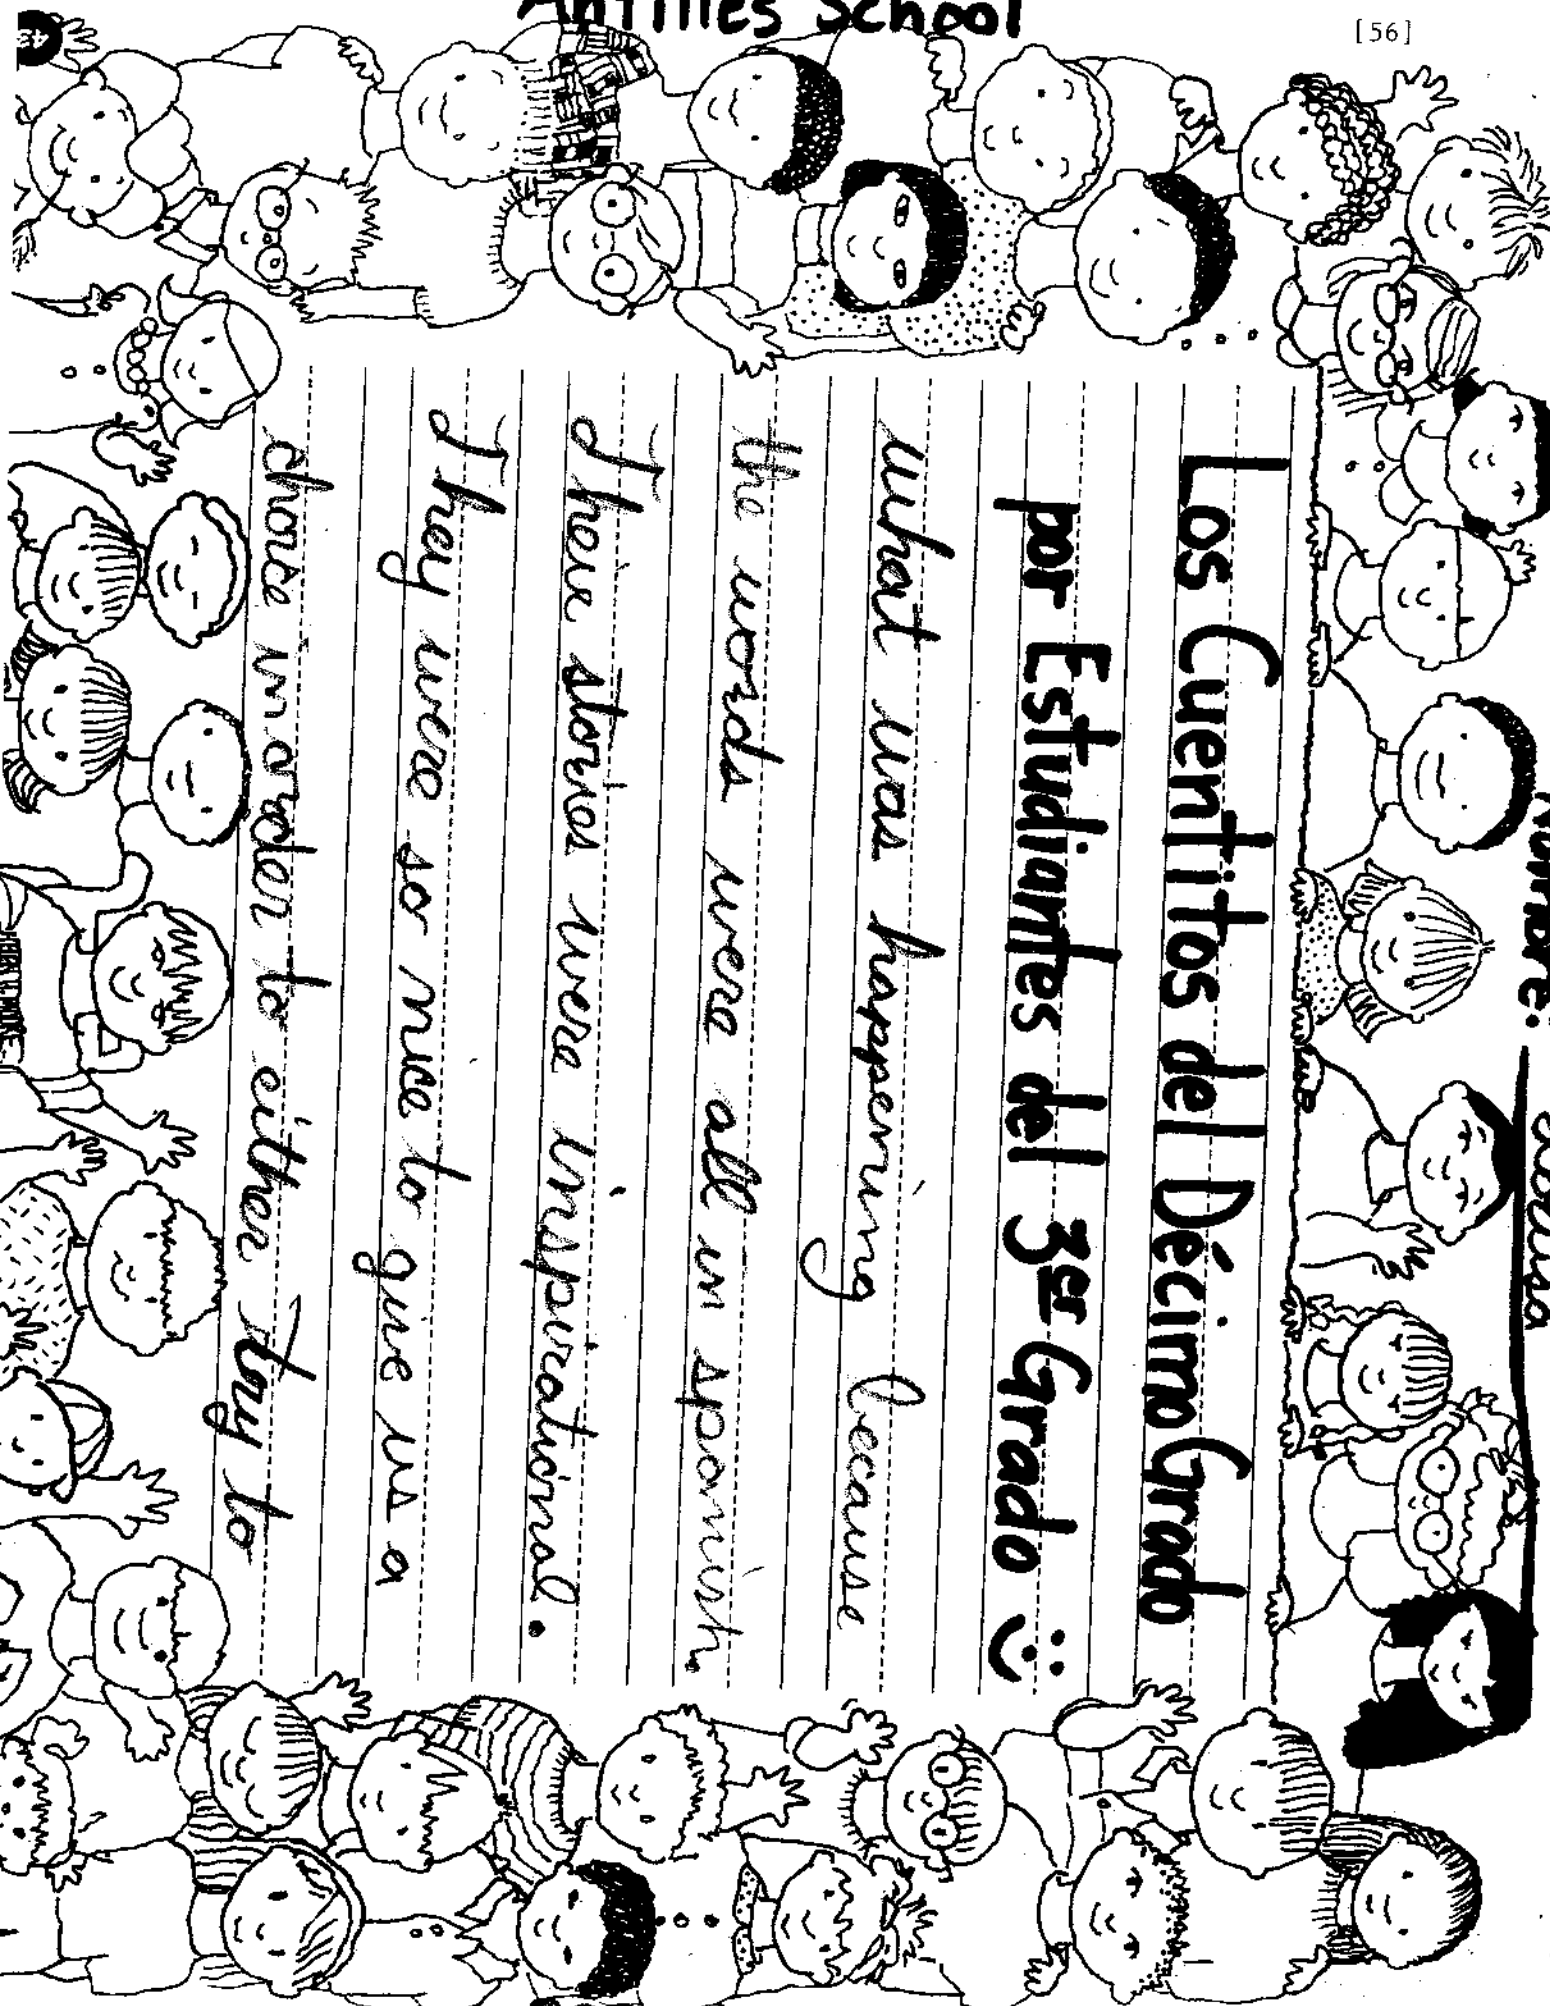 Antilles School
[56]
Nombre:
Los Cuentitos del Décimo Grado
por Estudiantes del 3er Grado
what was happening because
the words were all in spanish.
Their stories were inspirational.
They were so nice to give us a
choice in order to either try to
43